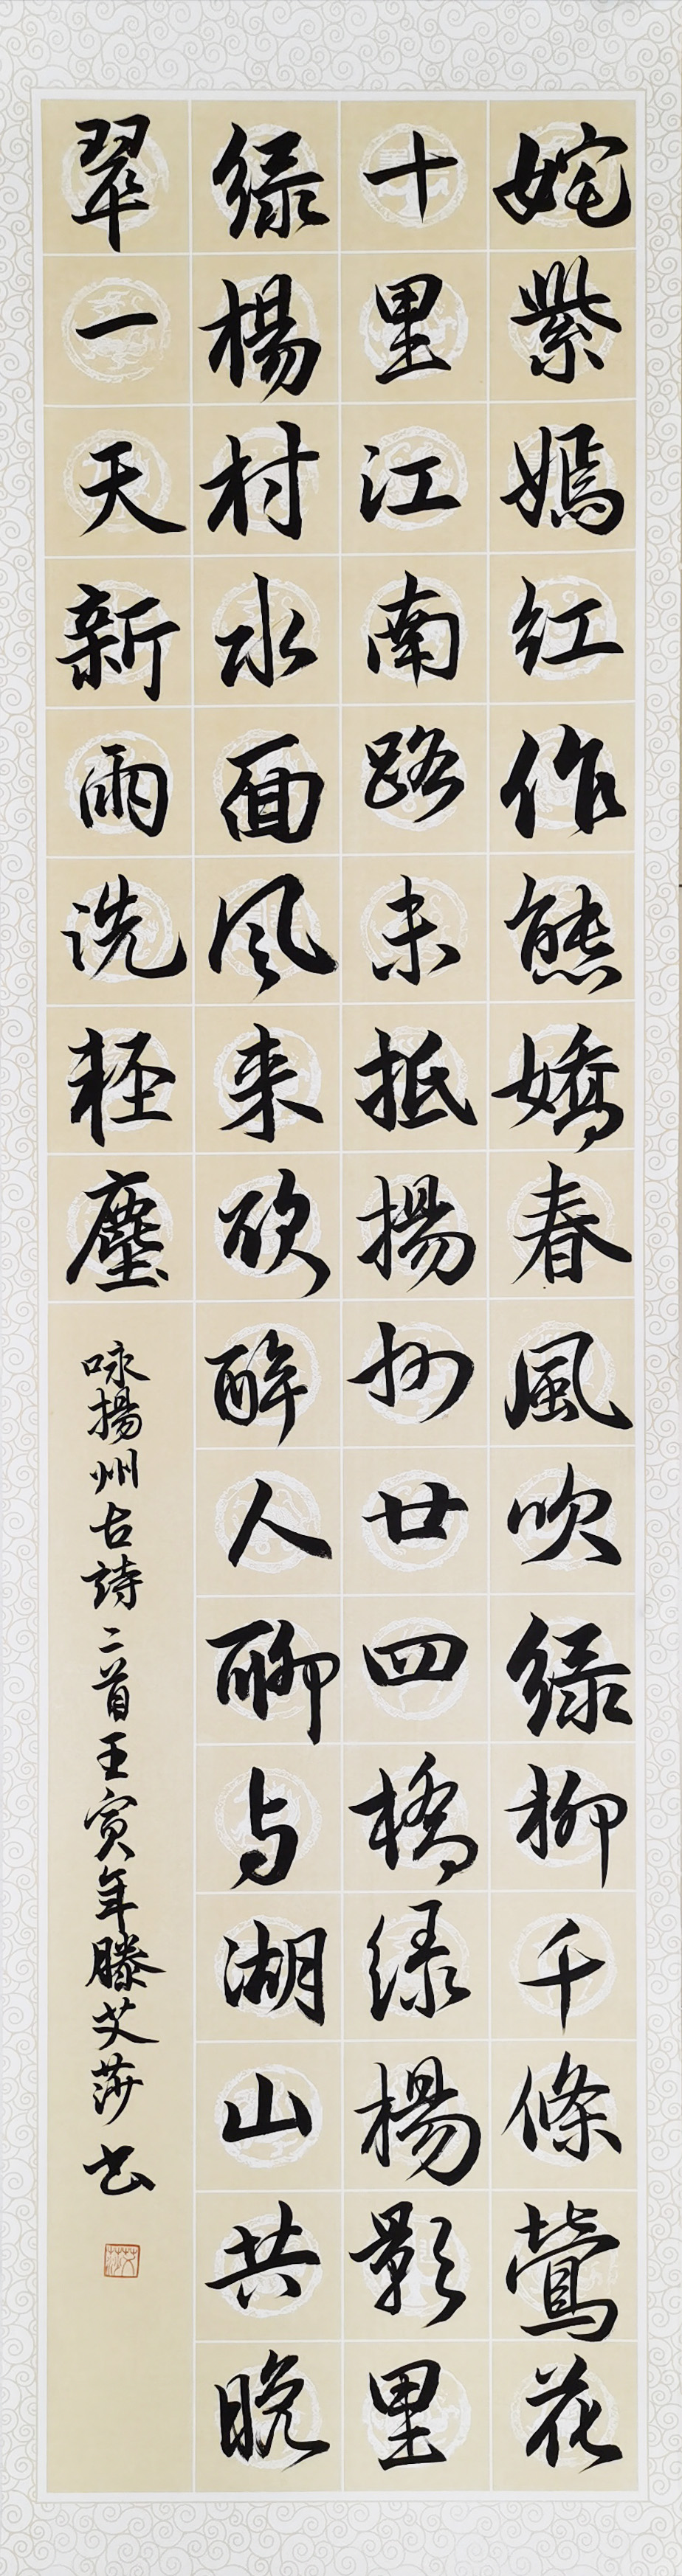 姹紫嫣红作態嬌春風吹绿柳千條鶯花
十里江南路未抵揚州廿四橋绿楊影里
绿楊村水面风来欲醉人聊与湖山共晚
翠一天新雨洗轻塵
咏揚州古詩二首壬寅年滕艾莎书